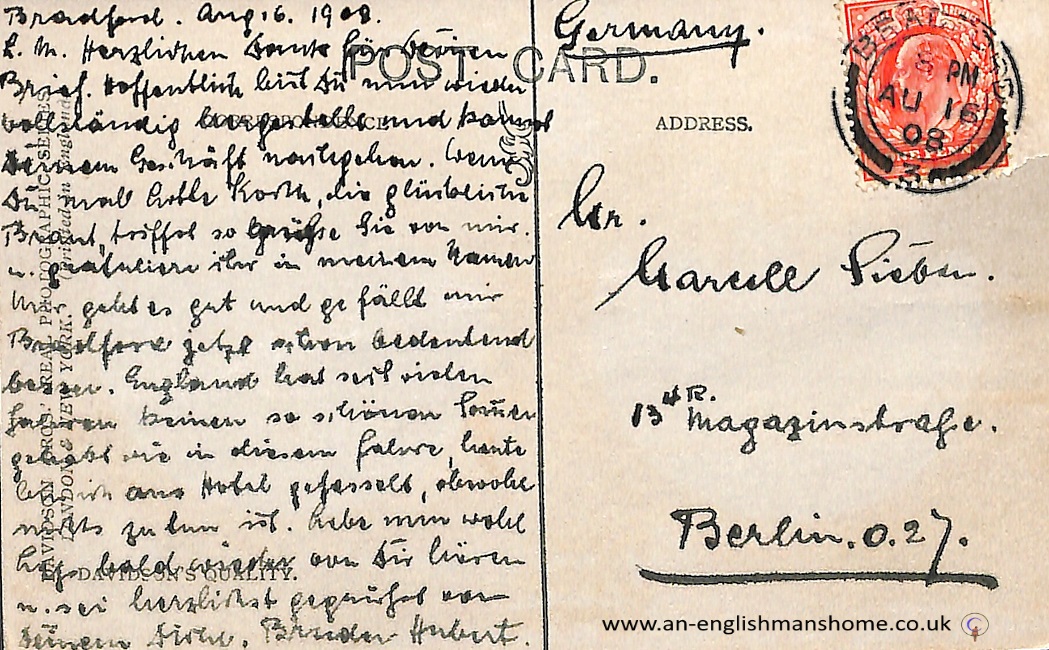 Bradford. Aug 16. 1908.
L. M. Herzlichen Dank für Deinen
Brief. Hoffentlich bist Du nun wieder
vollständig hergestellt und kannst
Deinem Geschäft nachgehen. Wenn
Du mal Lotte Korth, die glückliche
Braut, triffst so grüsse Sie von mir.
u. gratuliere ihr in meinem Namen
Mir geht es gut und gefällt mir
Bradford jetzt schon bedeutend
besser. England hat seit vielen
Jahren keinen so schönen Sommer
gehabt wie in diesem Jahre, heute
bin ich ans Hotel gefesselt, obwohl
nichts zu tun ist. Lebe nun wohl
lass bald wieder von Dir hören
u. sei herzlichst gegrüsst von
Deinem Bruder Hubert.
POST CARD.
CORRESPONDENCE
DAVIDSON BROS.' REAL PHOTOGRAPHIC SERIES
LONDON & NEW YORK. Printed in England
DAVIDSON'S QUALITY.
Germany.
ADDRESS.
8 PM
AU 16
08
3
Hrr.
Marcell Sieben.
13 4 Tr. Magazinstraße.
Berlin. O. 27.
www.an-englishmanshome.co.uk